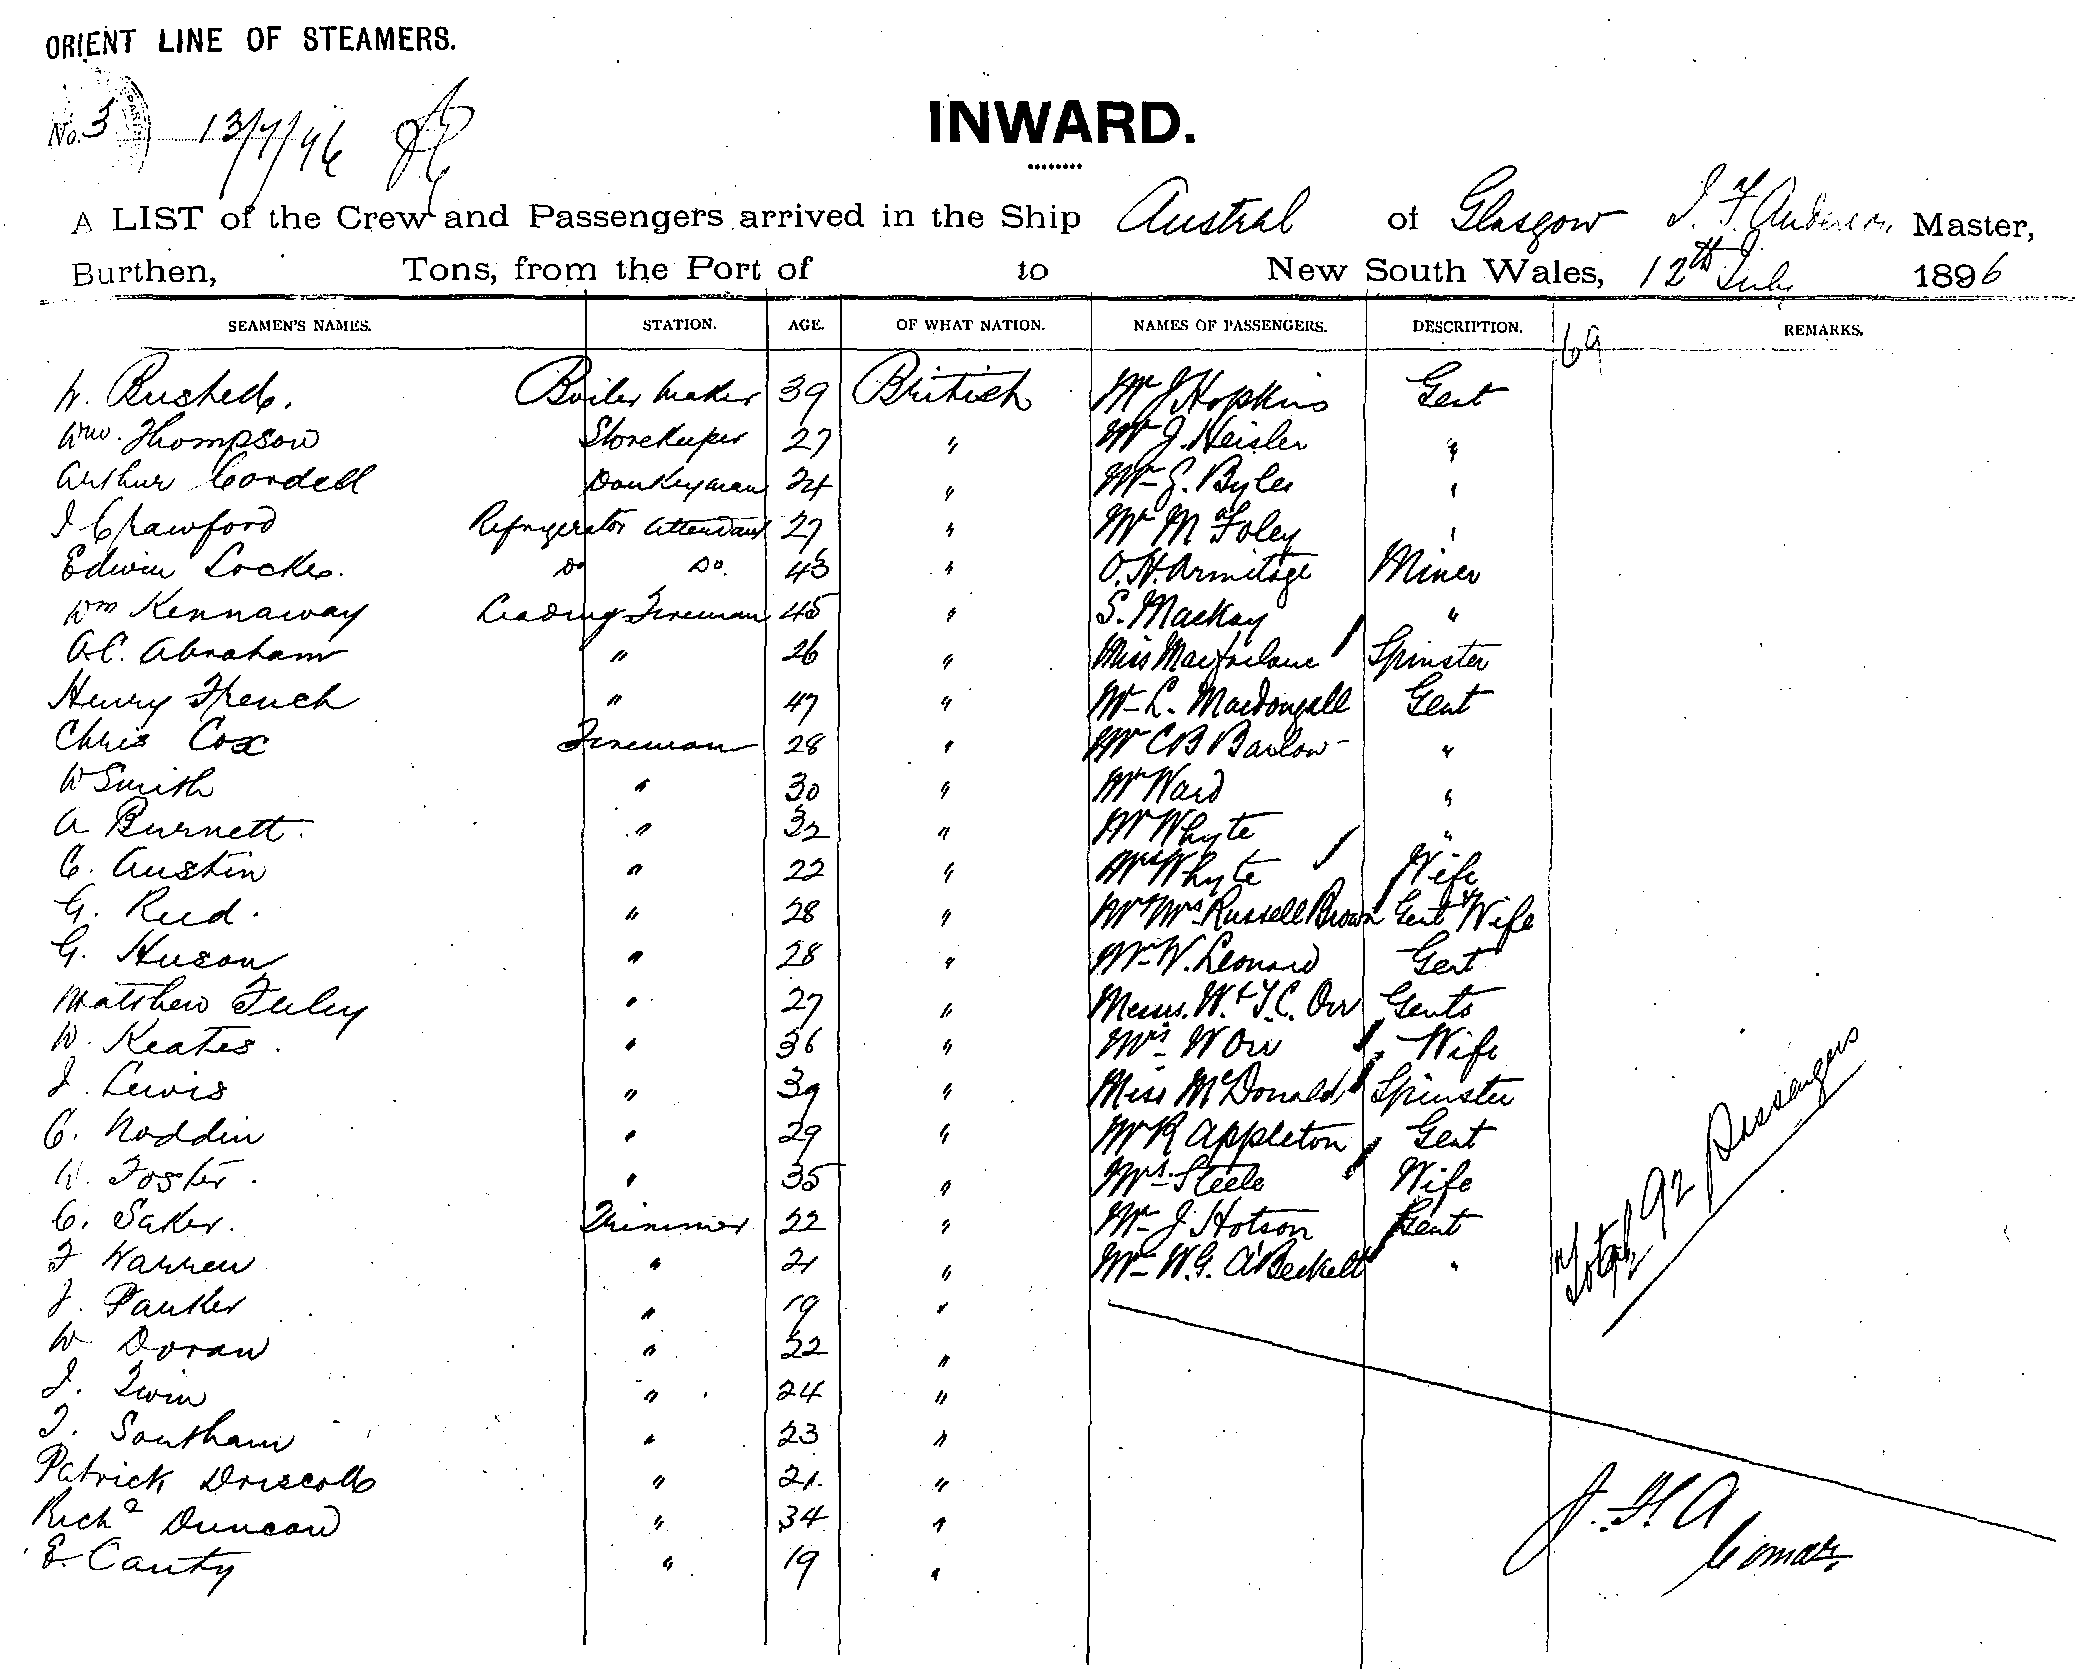 ORIENT LINE OF STEAMERS.
No. 3 13/7/96
INWARD.
A LIST of the Crew and Passengers arrived in the Ship Austral of Glasgow J. F. Anderson Master,
Burthen, Tons, from the Port of to New South Wales, 12th July 1896
SEAMEN'S NAMES. STATION. AGE. OF WHAT NATION. NAMES OF PASSENGERS. DESCRIPTION. REMARKS.
69
W. Boiler Maker 39 British Mr J Hopkins Gent
Wm. Thompson Storekeeper 27 " Mr J. Heisler "
Arthur Cordell Donkeyman 24 " Mr G. Byles "
J Crawford Refrigerator Attendant 27 " Mr M Foley "
Edwin Locke. Do Do. 43 " O. H. Armitage Miner
Wm Kennaway Leading Fireman 45 " S. Mackay "
A.C. Abraham " 26 " Miss Macfarlane Spinster
Henry French " 47 " Mr L. Macdougall Gent
Chris Cox Fireman 28 " Mr C B Barlow "
W Smith " 30 " Mr Ward "
A Burnett. " 32 " Mr Whyte "
C. Austin " 22 " Mrs Whyte Wife
G. Reed. " 28 " Mr Mrs Russell Brown Gent & Wife
G. Huson " 28 " Mr W. Leonard Gent
Matthew " 27 " Messrs. W. & T. C. Orr Gents
W. Keates. " 36 " Mrs W Orr Wife
J. Lewis " 39 " Miss McDonald Spinster
C. Noddin " 29 " Mr R Appleton Gent
W. Foster. " 35 " Mrs Steele Wife
C. Saker. Trimmer 22 " Mr J Hotson Gent
F Warren " 21 " Mr W. G. A'Beckett "
J. Parker " 19 "
W Doran " 22 "
J. Irwin " 24 "
T. Southam " 23 "
Patrick Driscoll " 21. "
Richd Duncan " 34 "
E. Canty " 19 "
Total 92 Passengers
J. F. A
Comdr.